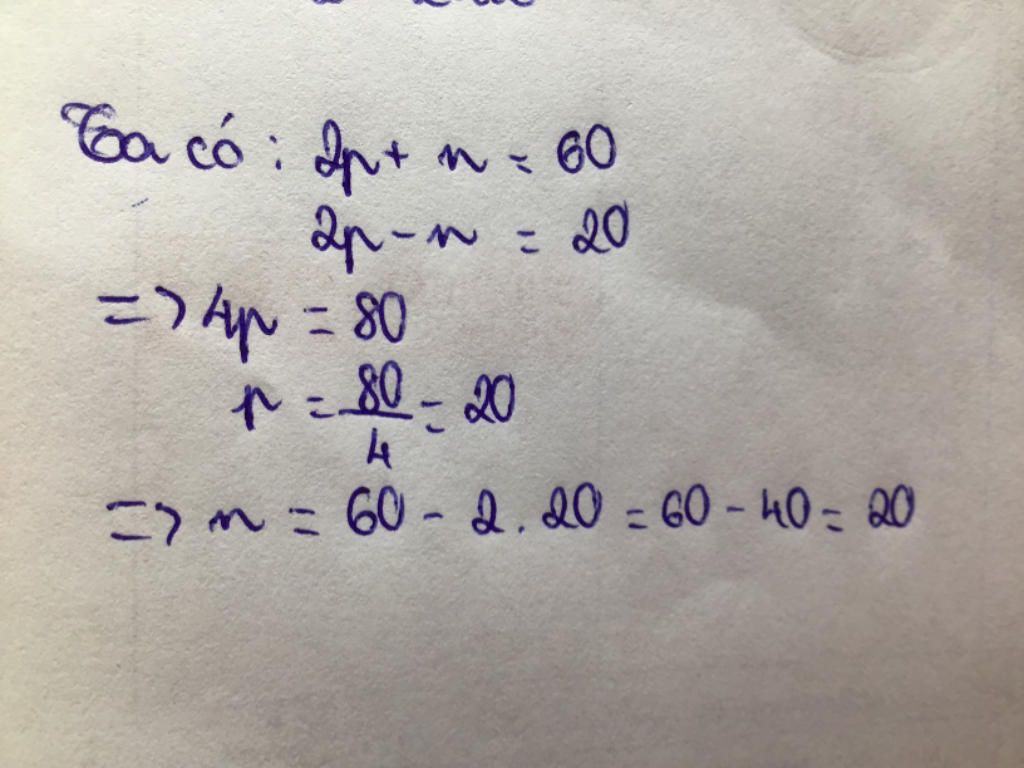 Ta có : 2p + n = 60
2p - n = 20
=> 4p = 80
p = 80/4 = 20
=> n = 60 - 2 . 20 = 60 - 40 = 20